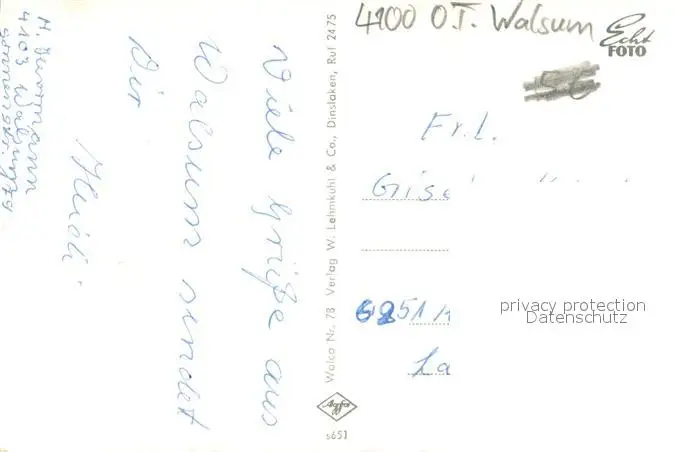 4100 OT. Walsum
Echt
FOTO
Viele Grüße aus
Walsum sendet
Dir
Heidi.
4103 Walsum
Walco Nr. 78 Verlag W. Lehmkuhl & Co., Dinslaken, Ruf 2475
Agfa
s651
Frl.
Gise
6251
La
privacy protection
Datenschutz